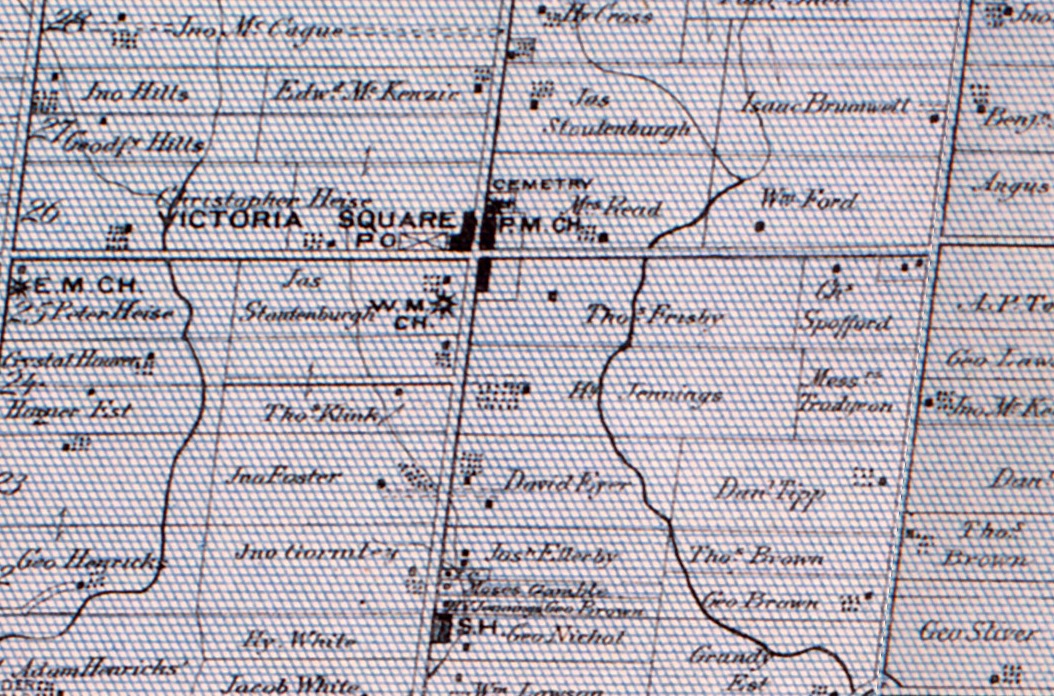 28
Jno. Mc Cague
Hy Cross
Jno Hills
Edwd. Mc Kenzie
Jas
Stoutenburgh
Isaac Brumwell
Benj.
27
Godfy Hills
Christopher Heise
CEMETRY
Mrs Read
Wm Ford
Angus
26
VICTORIA SQUARE
P.O
P.M. CH.
E.M. CH.
Jas
Stoutenburgh
W.M.
CH.
25
Peter Heise
Thos Frisby
Chs
Spofford
Crystal Hoover
24
Est
Thos Klink
Hy Jennings
Mess rs
Trudgeon
Geo Law
Jno. Mc Ke
23
Jno Foster
David Eyer
Danl Tipp
Dan
Geo Henricks
Jno Gormley
Josh Ellerby
Thos Brown
Thos
Brown
Moses Gamble
Hy Jennings Geo Brown
Geo Brown
S.H.
Geo Nichol
Hy. White
Grundy
Est
Geo Sliver
Adam Henricks'
Jacob White
Wm Lawson